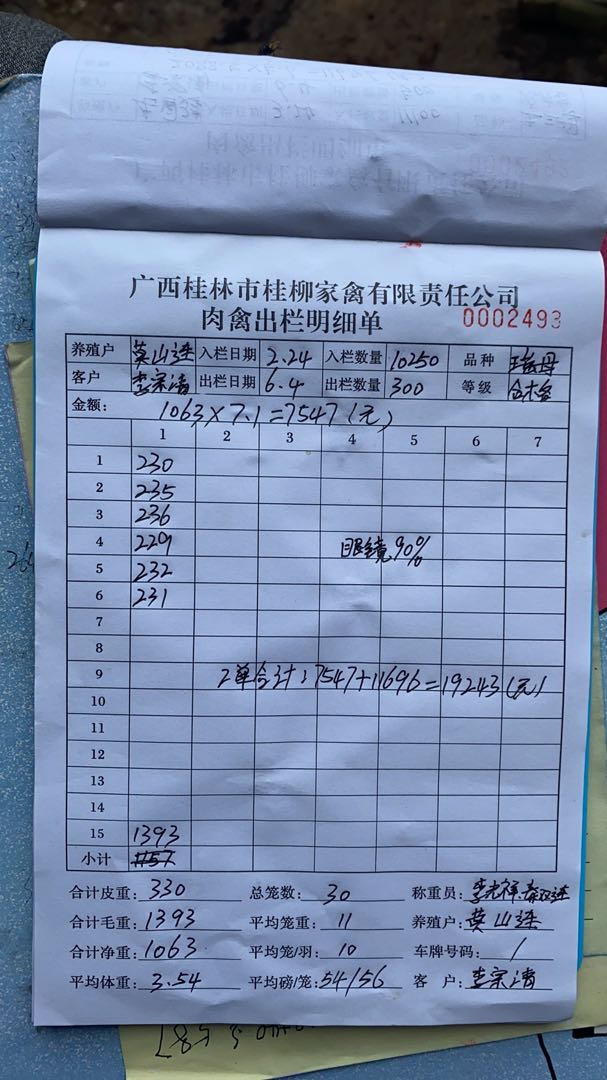 广西桂林市桂柳家禽有限责任公司
肉禽出栏明细单 0002493
养殖户 莫山连 入栏日期 2.24 入栏数量 10250 品种
客户 李宗清 出栏日期 6.4 出栏数量 300 等级
金额: 1063×7.1=7547(元)
1 2 3 4 5 6 7
1 230
2 235
3 236
4 229 眼镜90%
5 232
6 231
7
8
9 2单合计:7547+11696=19243(元)
10
11
12
13
14
15 1393
小计 1157
合计皮重: 330 总笼数: 30 称重员: 李光祥
合计毛重: 1393 平均笼重: 11 养殖户: 莫山连
合计净重: 1063 平均笼/羽: 10 车牌号码: /
平均体重: 3.54 平均磅/笼: 54/56 客户: 李宗清